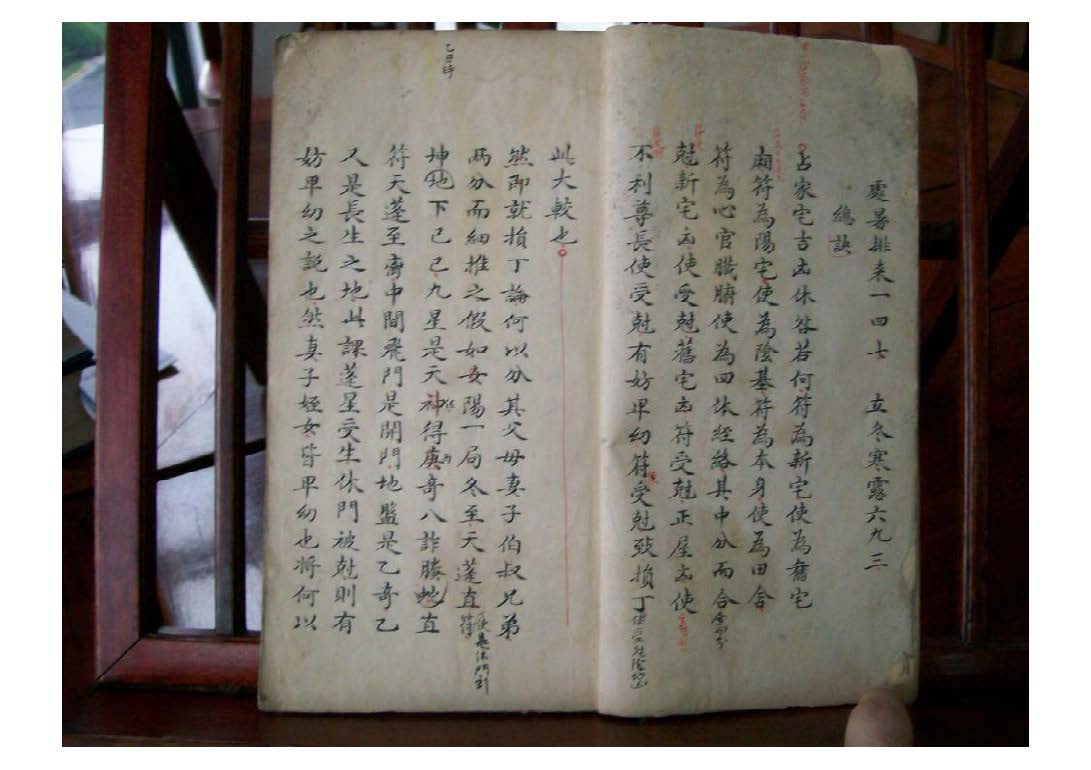 處暑排来一四七 立冬寒露六九三
總訣
占家宅吉凶休咎若何符為新宅使為舊宅
廂符為陽宅使為陰基符為本身使為田舍
符為心官臟腑使為四体經絡其中分而合
尅新宅凶使受尅舊宅凶符受尅正屋凶使
不利尊長使受尅有妨卑幼符受尅致損丁
此大較也
然即就損丁論何以分其父母妻子伯叔兄弟
兩分而細推之假如女陽一局冬至天蓬直
坤地下己己九星是天神得庚奇八詐螣蛇直
符天蓬至齊中間飛門是開門地盤是乙奇乙
又是長生之地此課蓬星受生休門被尅則有
妨卑幼之説也然妻子姪女皆卑幼也將何以
乙日時